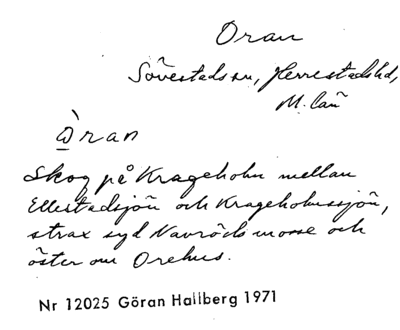 Oran
Sövestads sn, Herrestads hd,
M. län
òran
Skog på Krageholm mellan
Ellestadsjön och Krageholmssjön,
strax syd Navröds mosse och
öster om Orehus.
Nr 12025 Göran Hallberg 1971